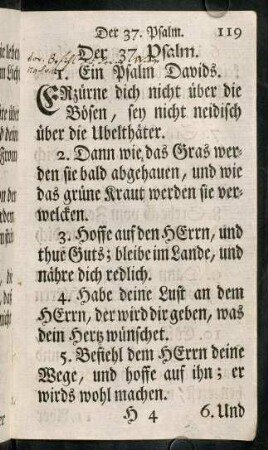 Der 37. Psalm. 119
Der 37. Psalm.
1. Ein Psalm Davids.
ERzürne dich nicht über die
Bösen, sey nicht neidisch
über die Ubelthäter.
2. Dann wie das Gras wer-
den sie bald abgehauen, und wie
das grüne Kraut werden sie ver-
welcken.
3. Hoffe auf den HErrn, und
thue Guts; bleibe im Lande, und
nähre dich redlich.
4. Habe deine Lust an dem
HErrn, der wird dir geben, was
dein Hertz wünschet.
5. Befiehl dem HErrn deine
Wege, und hoffe auf ihn; er
wirds wohl machen.
H 4 6. Und